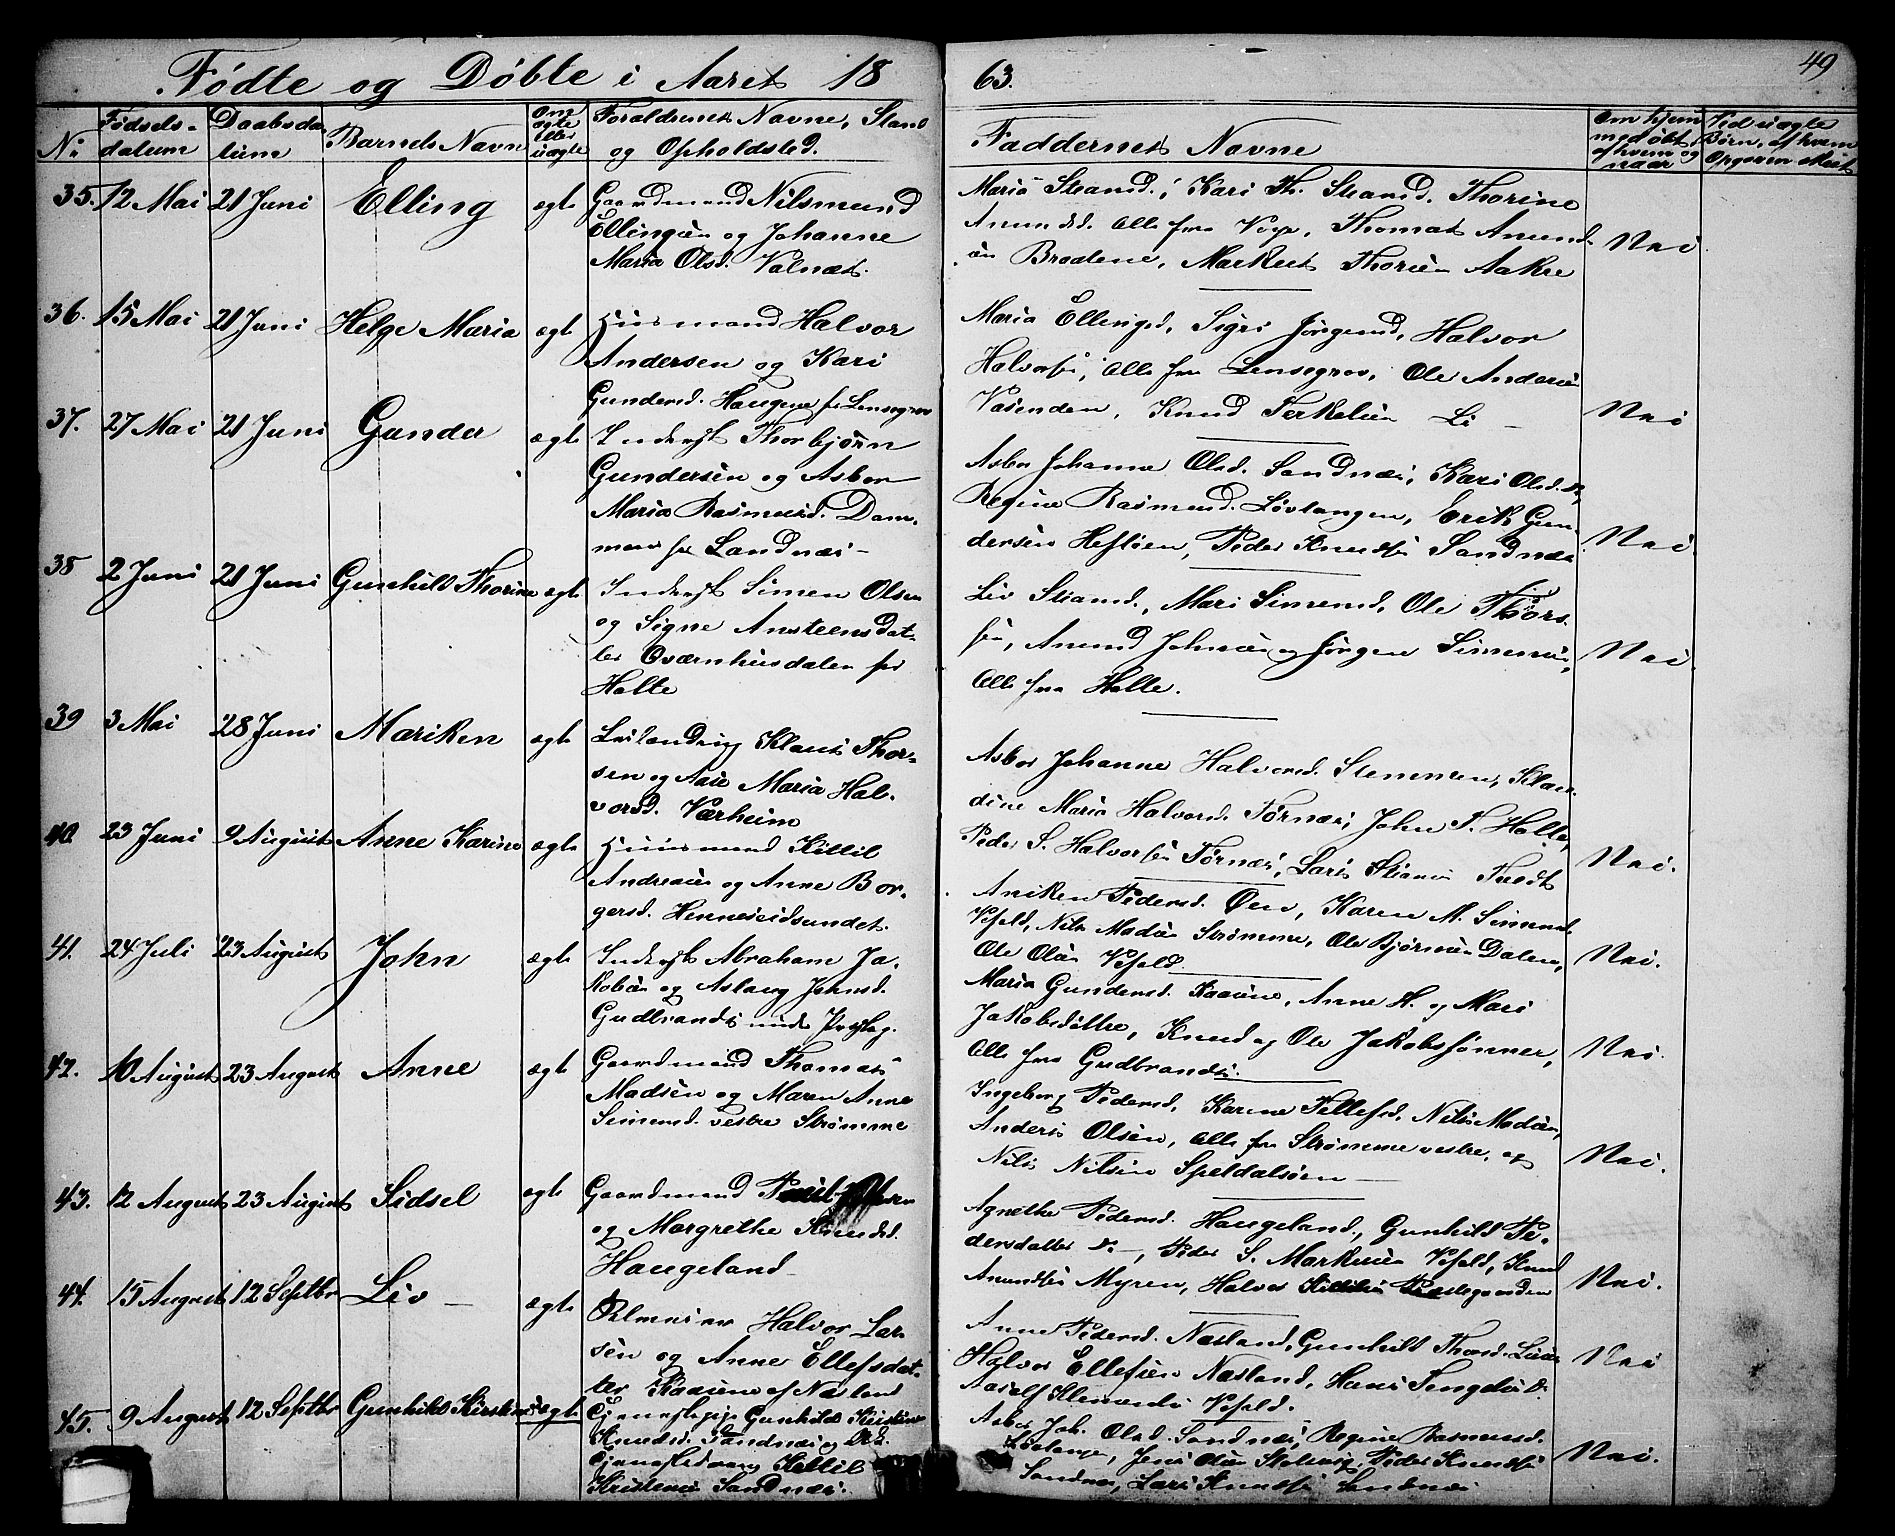 Fødte og Døbte i Aaret 18
63.
49
No
Fødsels-
datum
Daabsda-
tum
Barnets Navn
Om
ægte
eller
uægte
Forældrenes Navne, Stand
og Opholdsted.
Faddernes Navne
Om hjem-
medøbt
af hvem og
naar
Ved uægte
Børn, af hvem
Opgaven skeet
35. 12 Mai 21 Juni Elling ægte
Gaardmand Nils
Ellingsen og Johanne
Maria Olsd. Valnæs.
Kari Th. Thorine
alle fra Thomas Anund-
sen Brødene, Aakre
Nei
36. 15 Mai 21 Juni Helge Maria ægte
Huusmand Halvor
Andersen og Kari
Gundersd. Haugene
Maria Ellingsd, Sigri Jørgensd, Halvor
alle fra Ole Andersen
Vasenden, Knud Terkelsen Li
Nei
37. 27 Mai 21 Juni Gunder ægte
Inderst Thorbjørn
Gundersen og Asbor
Maria Rasmusd. Dam-
Sandnæs
Asbor Johanne Olsd. Sandnæs, Kari Olsd. do,
Regine Rasmusd. Løvlangen, Erik Gun-
dersen Peder Knudsen Sandnæs
Nei
38 2 Juni 21 Juni Gunhild Thorine ægte
Inderst Simen Olsen
og Signe Ansteensdat-
ter Qværnhusdalen fra
Holte
Liv Mari Simensd, Ole Thors-
sen, Anund Johnsen og Jørgen Simensen,
alle fra Holte.
Nei
39 3 Mai 28 Juni Mariken ægte
Klaus Thor-
sen og Aase Maria Hal-
vorsd. Værheim
Asbor Johanne Halvorsd. Stemmen, Klau-
dine Maria Halvorsd. Tørnæs, John T. Holte,
Peder S. Halvorsen Tørnæs, Lars Tvedt
Nei.
40. 23 Juni 9 August Anne Karine ægte
Huusmand Kittil
Andreasen og Anne Bor-
gersd. Henneseidsundet.
Aniken Pedersd. Øen, Karen M. Simensd.
Vefald, Nils Madsen Strømme, Ole Bjørnsen Dalen,
Ole Olsen Vefald.
Nei.
41. 24 Juli 23 August John ægte
Inderst Abraham Ja-
kobsen og Aslaug Johnsd.
Gudbrandsnæs
Maria Gundersd. Kaasene, Anne H. og Mari
Jakobsdøttre, Knud og Ole Jakobssønner,
alle fra Gudbrandsnæs.
Nei.
42. 10 August 23 August Anne ægte
Gaardmand Thomas
Madsen og Maren Anne
Simensd. vestre Strømme
Ingeborg Pedersd, Karine Tellefsd, Nils Madsen,
Anders Olsen, alle fra Strømme vestre, og
Nils Nilsen
Nei.
43. 12 August 23 August Sidsel ægte
Gaardmand
og Margrethe Knudsd.
Haugeland
Agnethe Pedersd. Haugeland, Gunhild Pe-
dersdatter do -, Peder S. Markusen Vefald, Knud
Anundsen Myren, Halvor
Nei.
44. 15 August 12 Septbr Liv - ægte
Halvor Lar-
sen og Anne Ellefsdat-
ter Kaasene af Næsland
Anne Pedersd. Næsland, Gunhild Thorsd.
Halvor Ellefsen Næsland, Hans do.
Vefald.
Nei
45. 9 August 12 Septbr Gunhild Kirstine uægte
Tjenestepige Gunhild Kirstine
Knudsd. Sandnæs og
Kittil
Kristensen Sandnæs.
Asbor Joh. Olsd. Sandnæs, Regine Rasmusd.
Løvlangen, Jens Olsen Peder Knudsen
Sandnæs, Lars Knudsen Sandnæs
Nei.